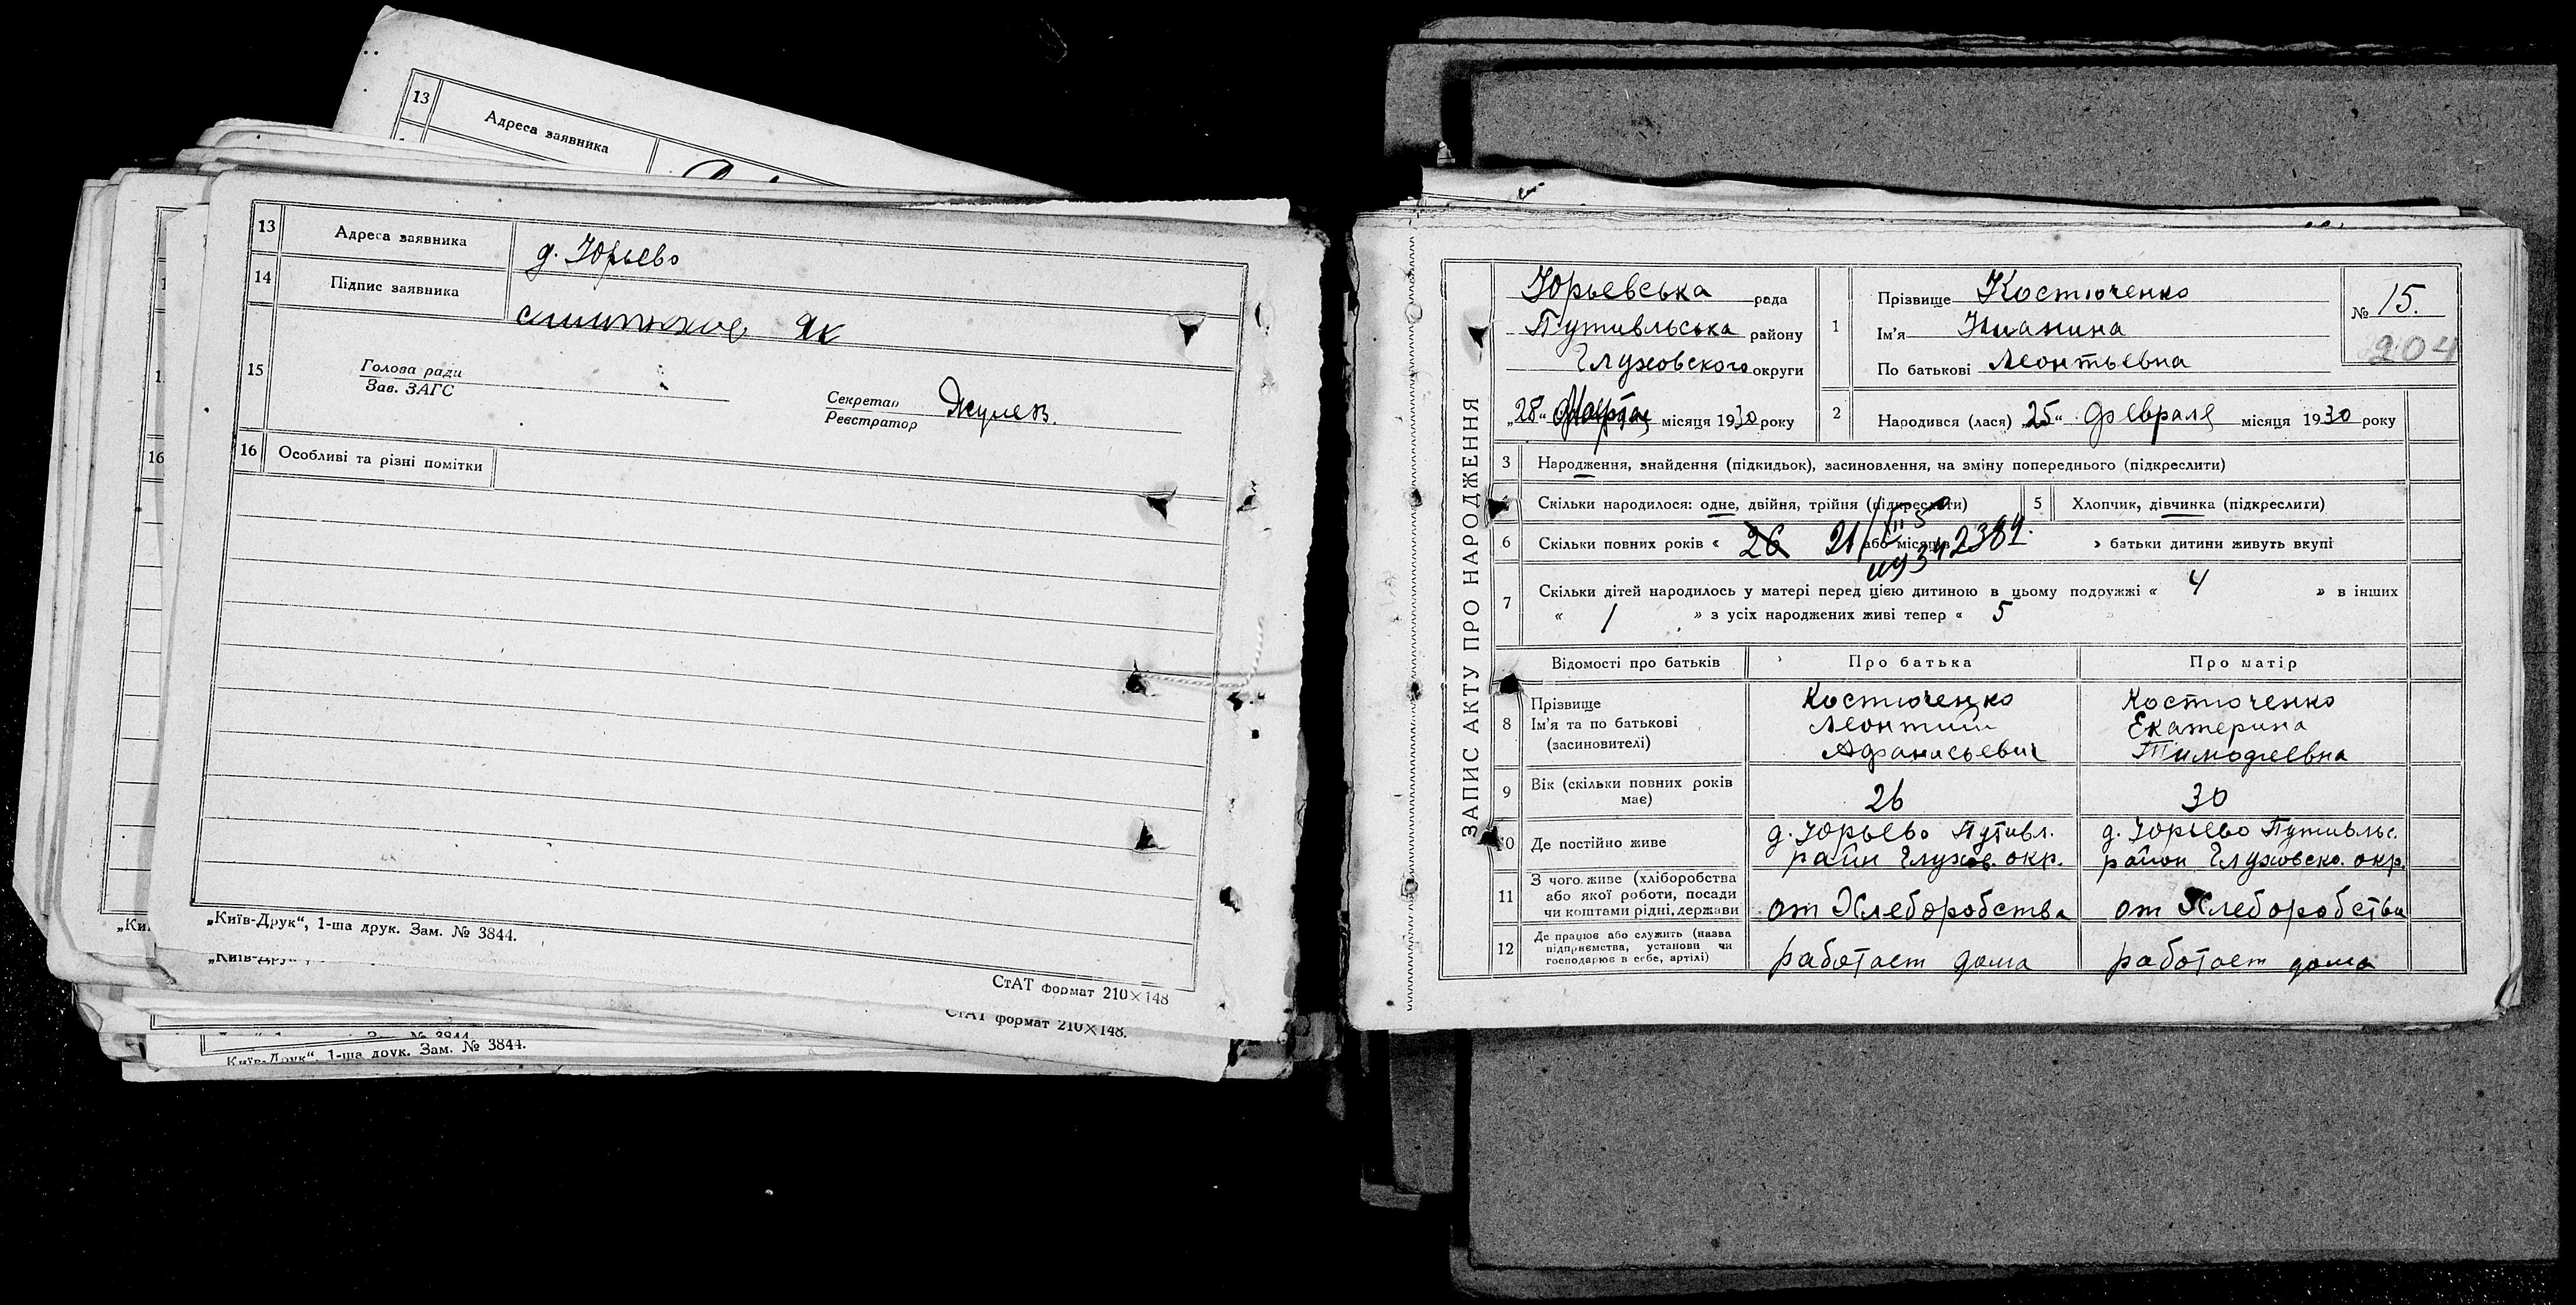 13 Адреса заявника
13 Адреса заявника д. Юрьево
14 Підпис заявника
15 Голова ради
Зав. ЗАГС
Секретар
Реєстратор
16 Особливі та різні помітки
„Київ-Друк“, 1-ша друк. Зам. № 3844.
СтАТ формат 210×148
СтАТ формат 210×148.
„Київ-Друк“, 1-ша друк. Зам. № 3844.
ЗАПИС АКТУ ПРО НАРОДЖЕННЯ
Юрьевська рада
Путивльська району
Глуховского округи
„28“ Марта місяця 1930 року
1 Прізвище Костюченко
Ім'я
По батькові Леонтьевна
№ 15.
204
2 Народився (лася) „25“ Февраля місяця 1930 року
3 Народження, знайдення (підкидьок), засиновлення, на зміну попереднього (підкреслити)
4 Скільки народилося: одне, двійня, трійня (підкреслити) 5 Хлопчик, дівчинка (підкреслити)
6 Скільки повних років « 26 21 або місяців » батьки дитини живуть вкупі
7 Скільки дітей народилось у матері перед цією дитиною в цьому подружжі « 4 » в інших
« 1 » з усіх народжених живі тепер « 5
Відомості про батьків Про батька Про матір
8 Прізвище Костюченко Костюченко
Ім'я та по батькові Леонтий Екатерина
(засиновителі) Афанасьевич Тимофеевна
9 Вік (скільки повних років має) 26 30
10 Де постійно живе д. Юрьево Путивл. д. Юрьево Путивльс.
район Глухов. окр. район Глуховско. окр.
11 З чого живе (хліборобства
або якої роботи, посади
чи коштами рідні, держави от Хлеборобства от Хлеборобства
12 Де працює або служить (назва
підприємства, установи чи
господарює в себе, артілі) работает дома работает дома